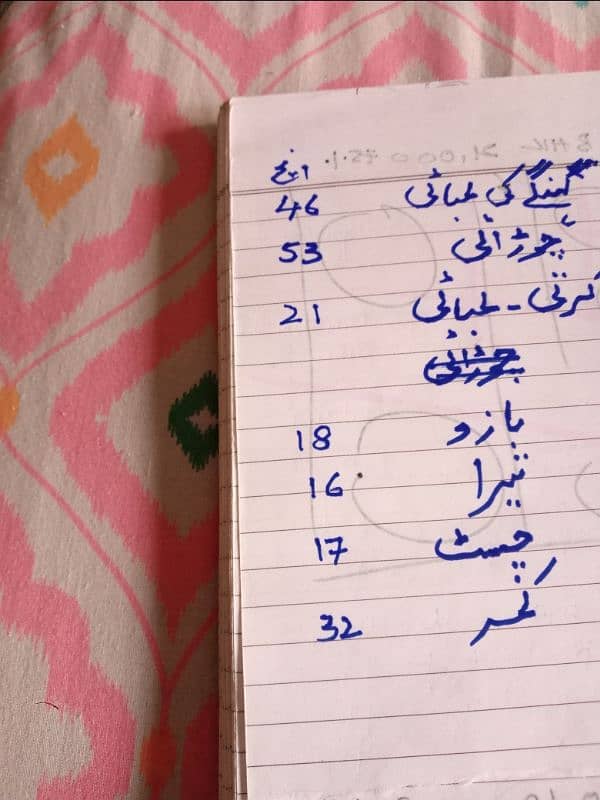 انچ
لہنگے کی لمبائی 46
چوڑائی 53
کرتی - لمبائی 21
چوڑائی
بازو 18
تیرا 16
چسٹ 17
کمر 32